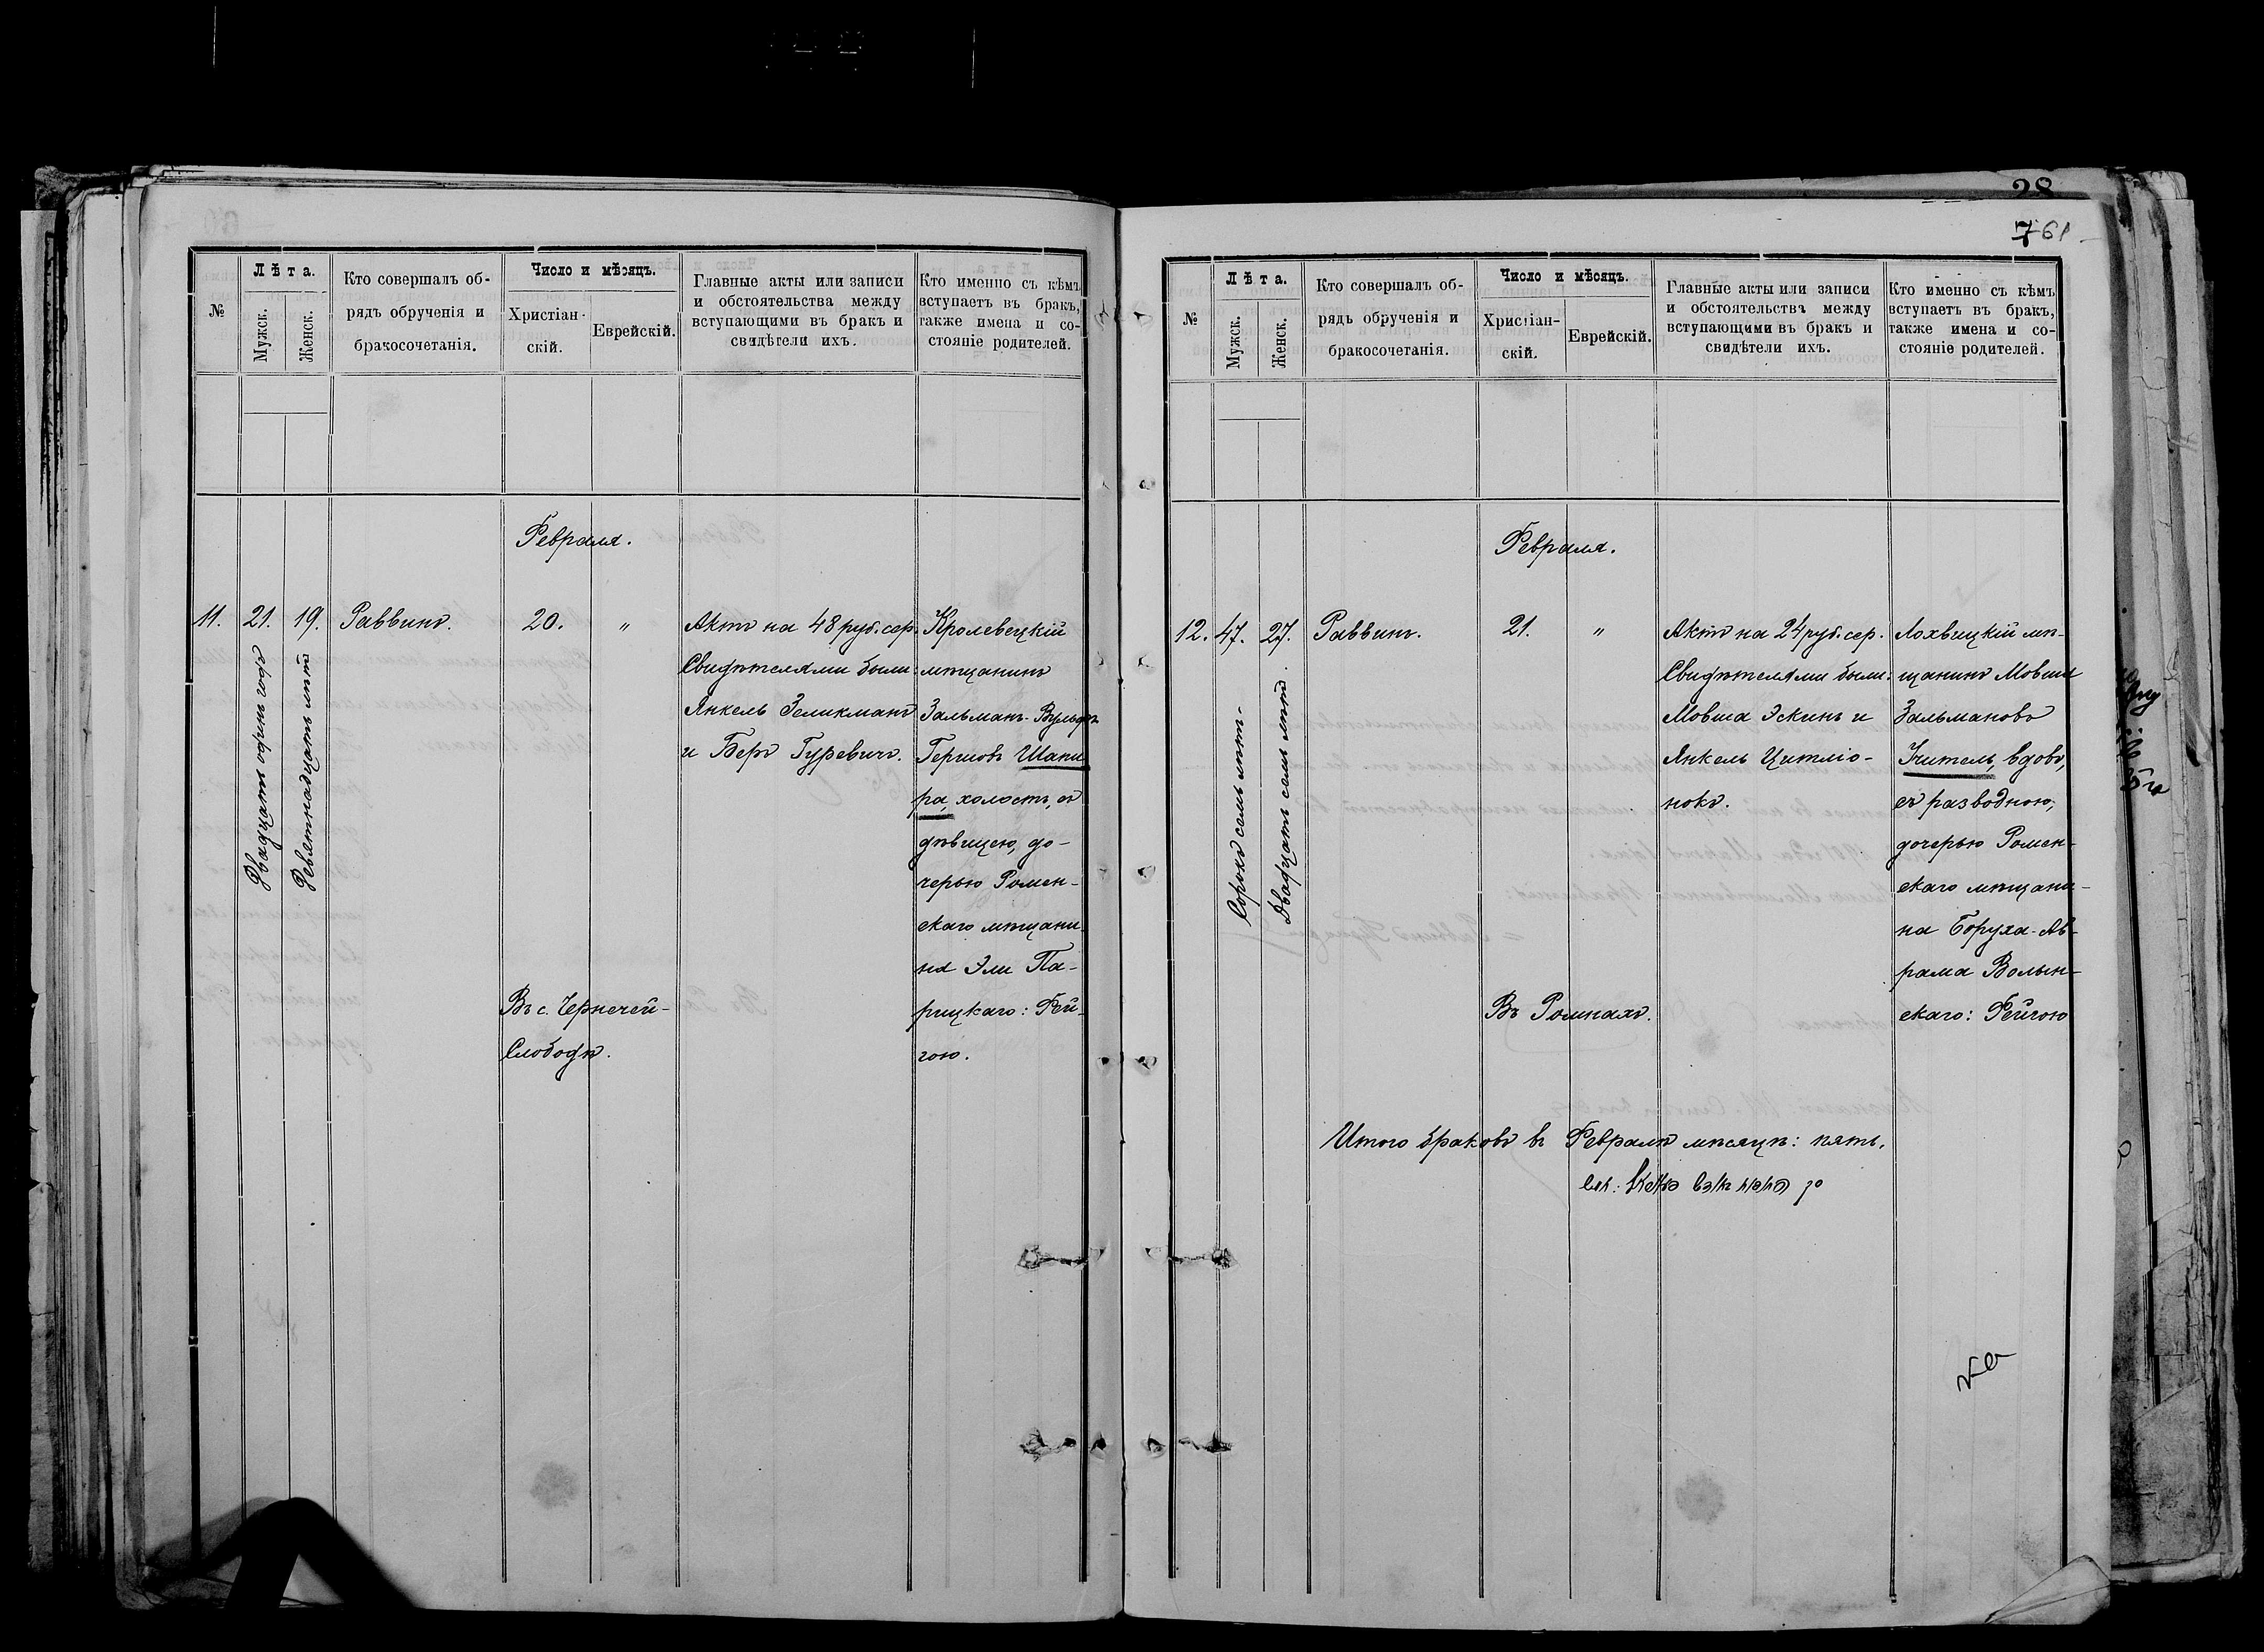 28
761
№
Лѣта.
Мужск.
Женск.
Кто совершалъ об-
рядъ обрученія и
бракосочетанія.
Число и мѣсяцъ.
Христіан-
скій.
Еврейскій.
Главные акты или записи
и обстоятельства между
вступающими въ бракъ и
свидѣтели ихъ.
Кто именно съ кѣмъ
вступаетъ въ бракъ,
также имена и со-
стояніе родителей.
Февраля.
11.
21.
Двадцать одинъ годъ
19.
Девятнадцать лѣтъ
Раввинъ.
20.
"
Въ с. Чернечей-
Слободѣ.
Актъ на 48 руб. сер.
Свидѣтелями были:
Янкель Зеликманъ
и Беръ Гуревичъ.
Кролевецкій
мѣщанинъ
Зальманъ-Вульфъ
Гершовъ Шапи
ра, холостъ, съ
дѣвицею, до-
черью Ромен-
скаго мѣщани-
на Эли Па-
рицкаго: Фей-
гою.
№
Лѣта.
Мужск.
Женск.
Кто совершалъ об-
рядъ обрученія и
бракосочетанія.
Число и мѣсяцъ.
Христіан-
скій.
Еврейскій.
Главные акты или записи
и обстоятельства между
вступающими въ бракъ и
свидѣтели ихъ.
Кто именно съ кѣмъ
вступаетъ въ бракъ,
также имена и со-
стояніе родителей.
Февраля.
12.
47.
Сорокъ семь лѣтъ.
27.
Двадцать семь лѣтъ.
Раввинъ.
21.
"
Въ Ромнахъ.
Актъ на 24 руб. сер.
Свидѣтелями были:
Мовша Эскинъ и
Янкель Цитліо-
нокъ.
Лохвицкій мѣ-
щанинъ Мовша
Зальмановъ
Учитель, вдовъ,
съ разводною,
дочерью Ромен-
скаго мѣщани-
на Боруха-Ав-
рама Волын-
скаго: Фейгою
Итого браковъ въ Февралѣ мѣсяцѣ: пять.